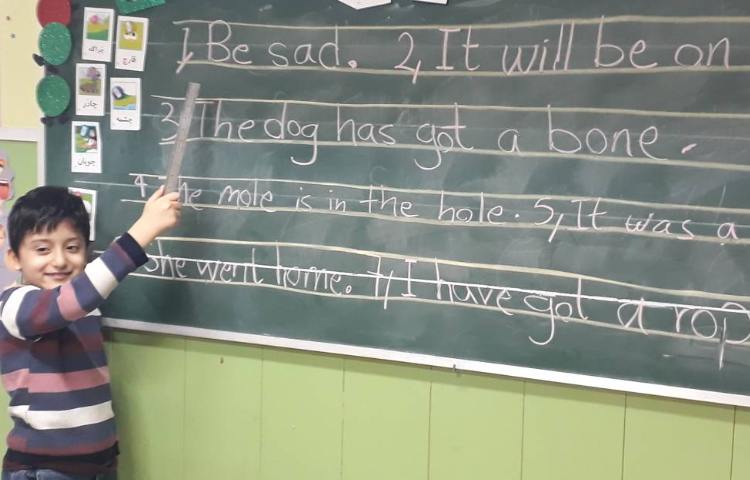 1, Be sad. 2, It will be on
3, The dog has got a bone.
4, The mole is in the hole. 5, It was a
She went home. 7, I have got a rop
چراگاه
قارچ
چادر
چشمه
چوپان